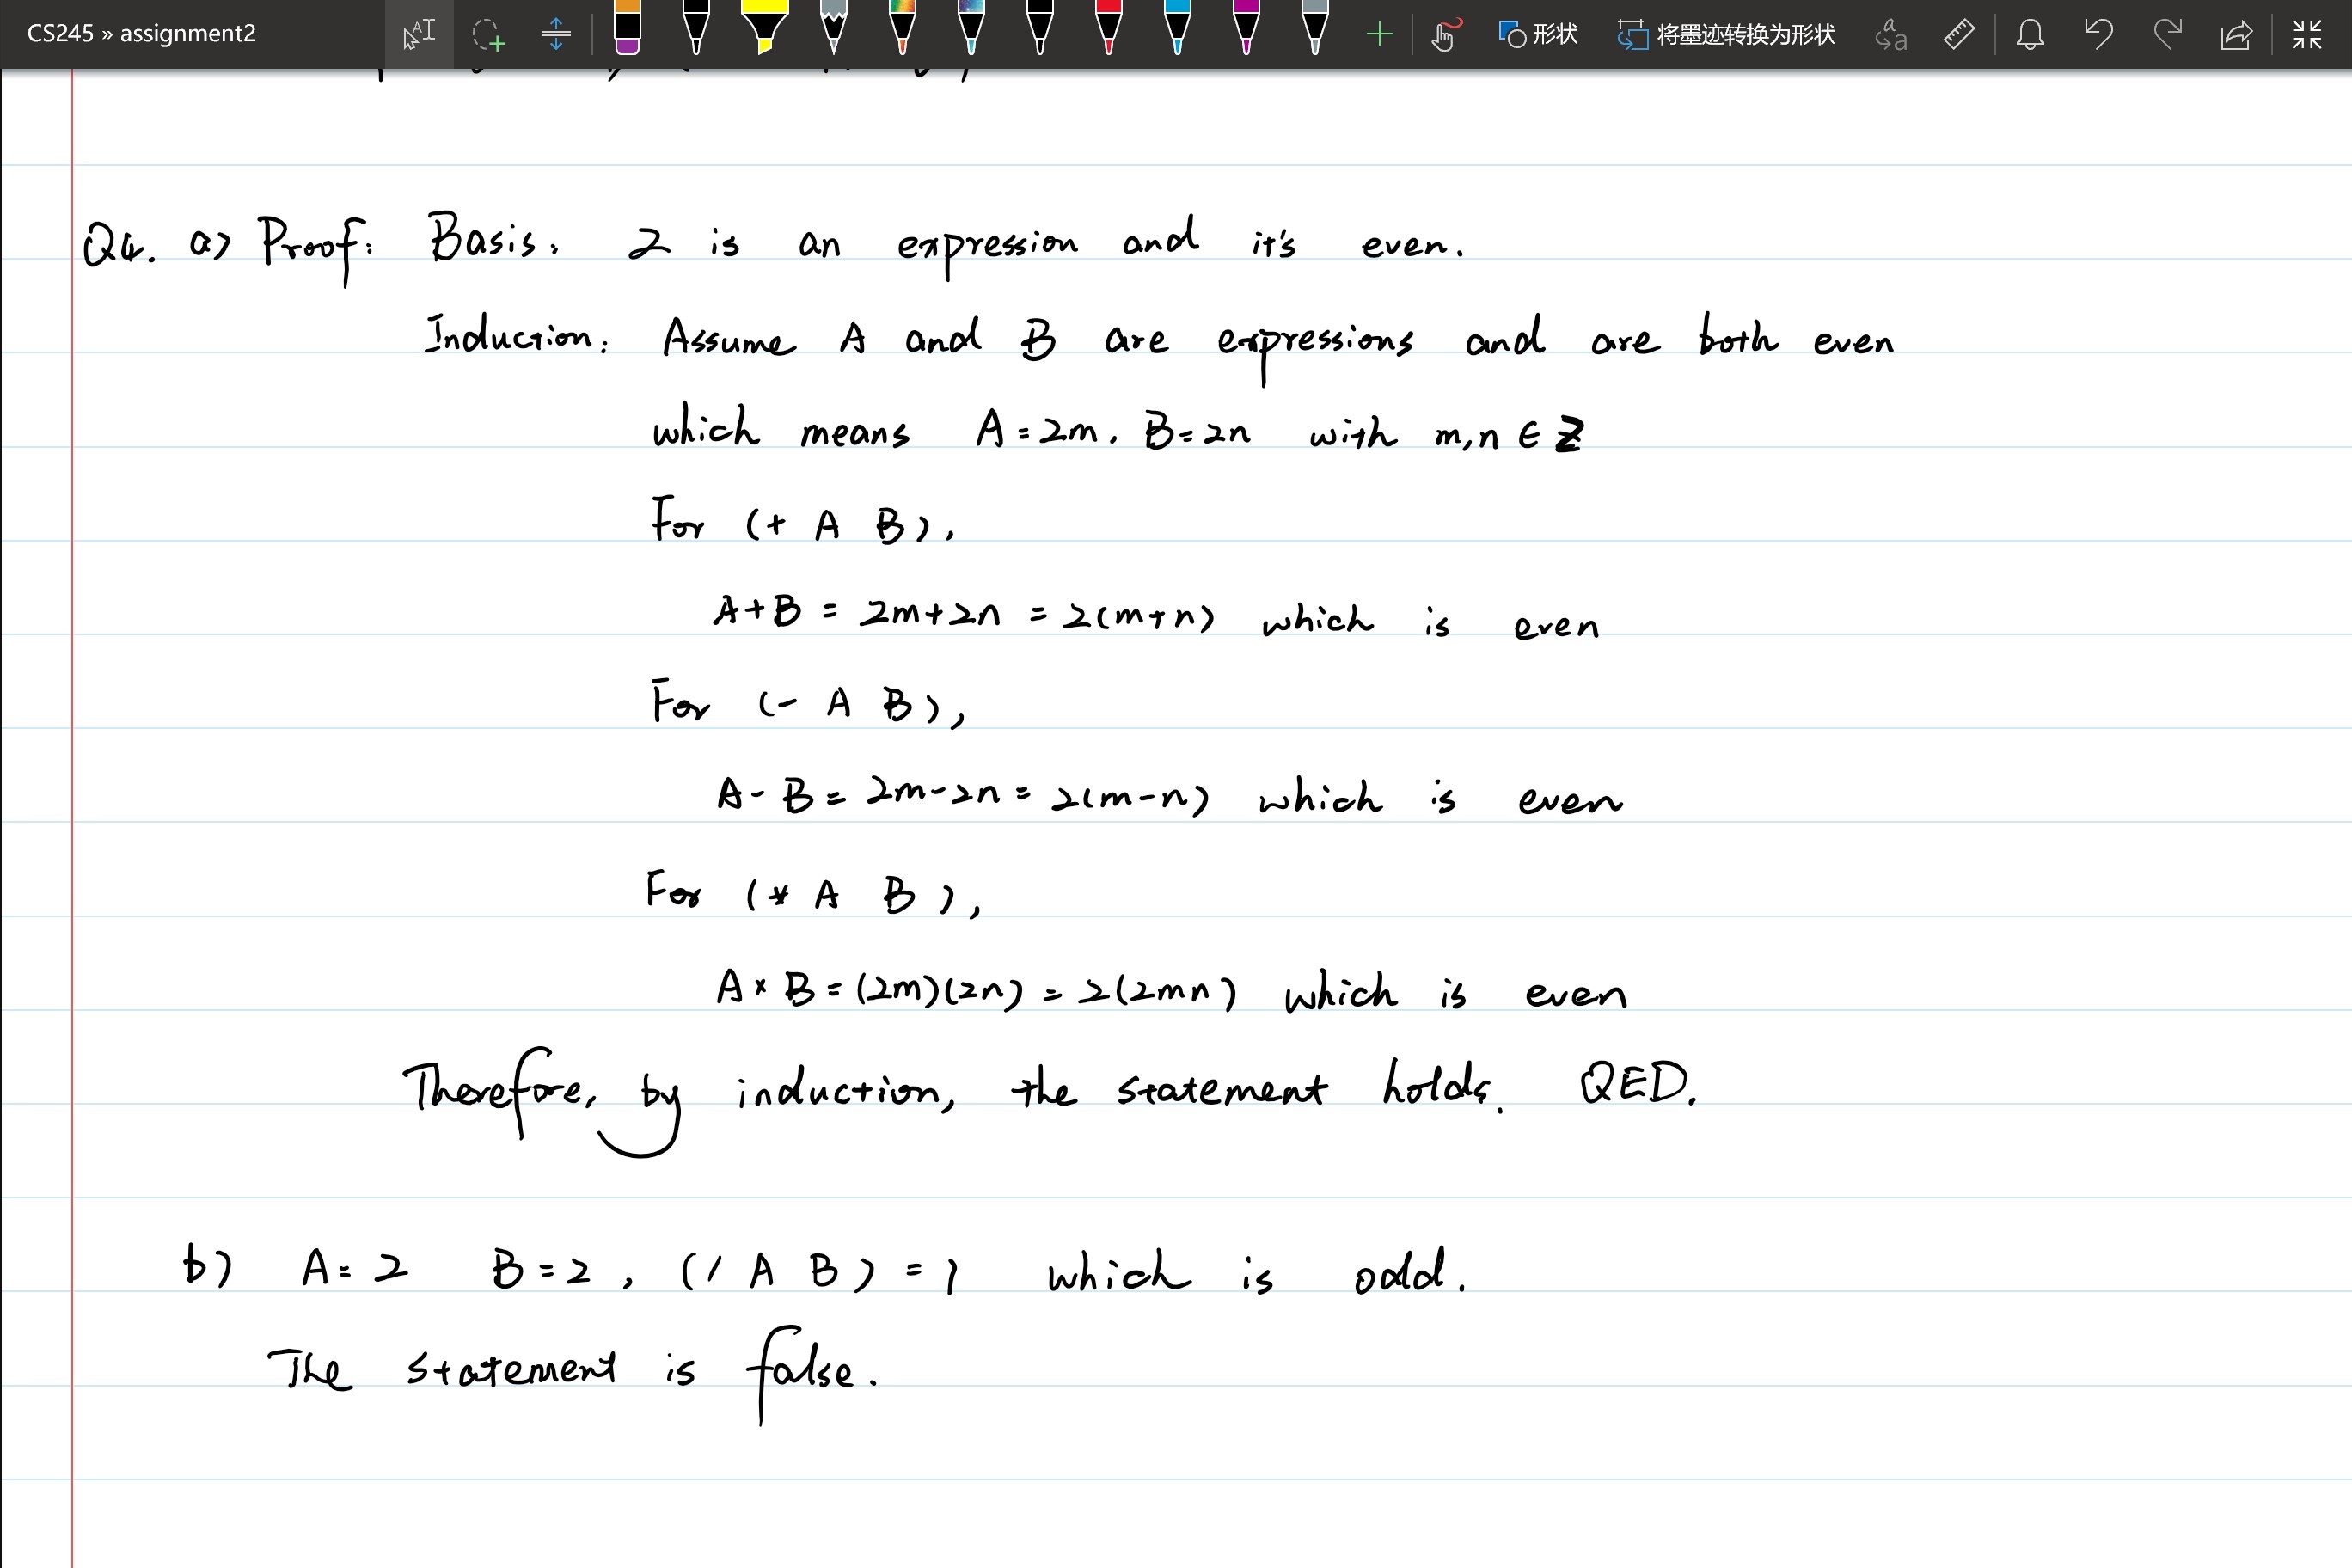 CS245 » assignment2
形状
将墨迹转换为形状
Q4. a) Proof: Basis: 2 is an expression and it's even.
Induction: Assume A and B are expressions and are both even
which means A=2m, B=2n with m,n ∈ Z
For (+ A B),
A+B = 2m+2n = 2(m+n) which is even
For (- A B),
A-B = 2m-2n = 2(m-n) which is even
For (* A B),
A×B = (2m)(2n) = 2(2mn) which is even
Therefore, by induction, the statement holds. QED.
b) A=2 B=2, (/ A B) = 1 which is odd.
The statement is false.